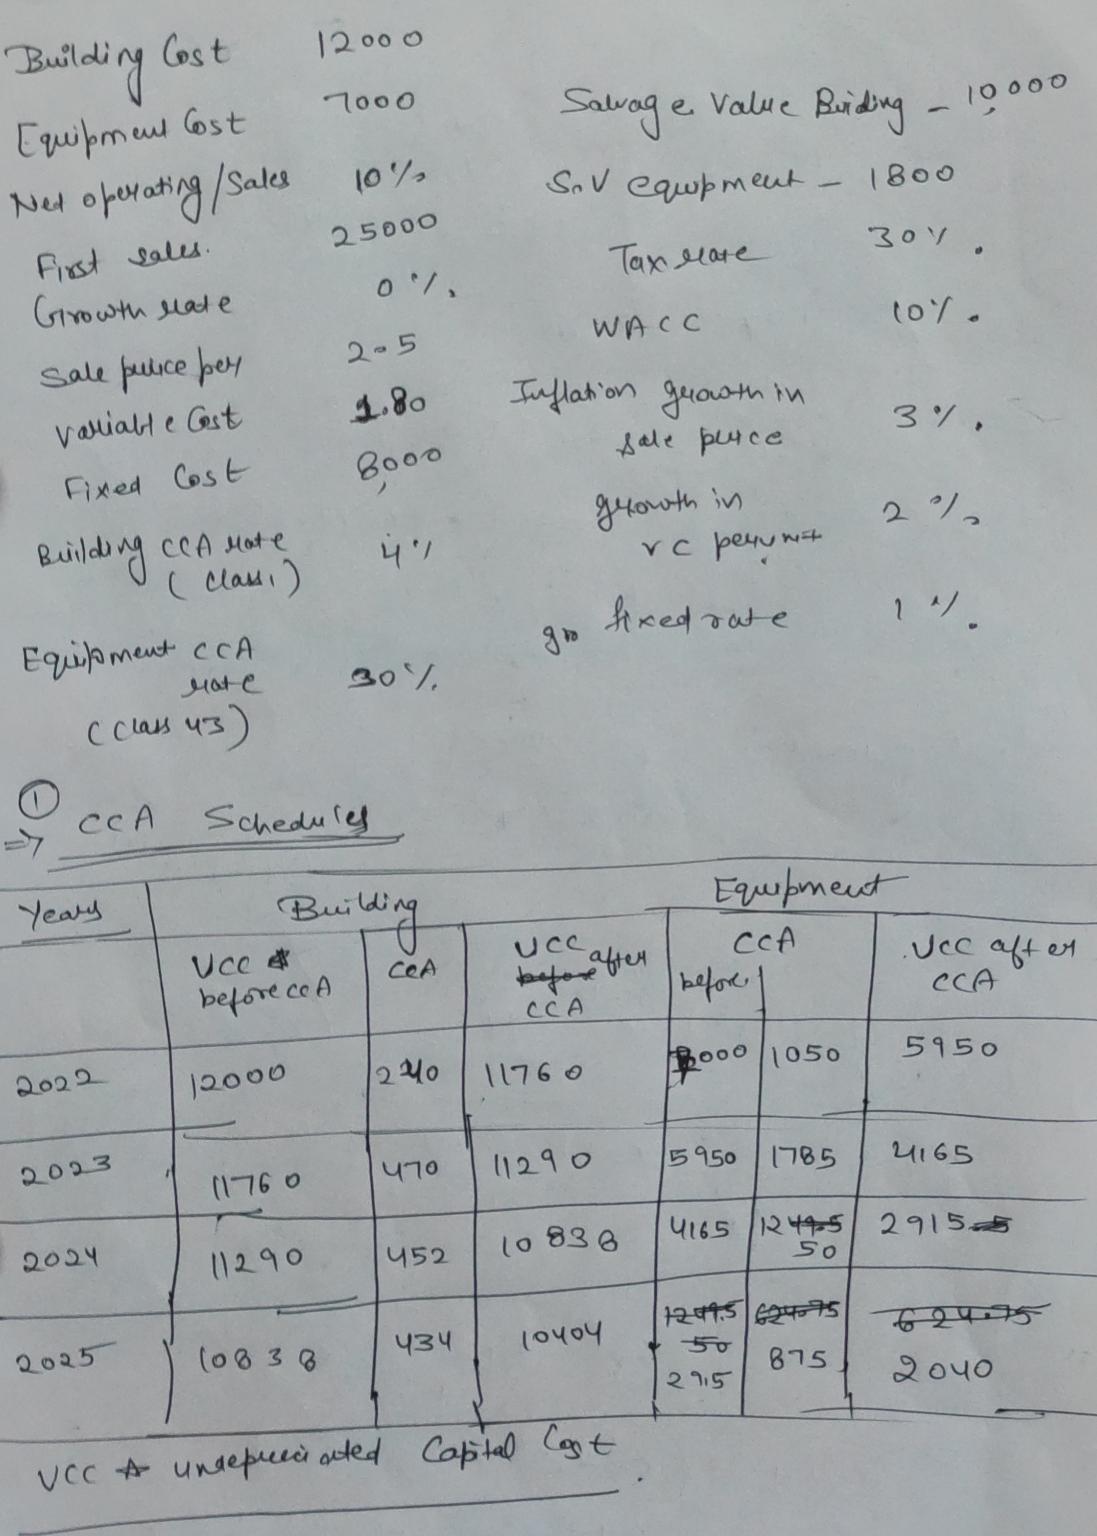 Building Cost 12000
Equipment Cost 7000
Net operating/Sales 10%
First sales. 25000
Growth rate 0%.
Sale price per 2.5
variable Cost 1.80
Fixed Cost 8,000
Building CCA rate 4%
(class 1)
Equipment CCA
rate 30%.
(class 43)
Salvage Value Buiding - 10,000
S.V equipment - 1800
Tax rate 30%.
WACC 10%.
Inflation growth in
sale price 3%.
growth in
vc perunit 2%
gro fixed rate 1%.
①
⇒ CCA Schedules
Years Building Equipment
UCC before CCA CCA UCC before after CCA before CCA UCC after CCA
2022 12000 240 11760 7000 1050 5950
2023 11760 470 11290 5950 1785 4165
2024 11290 452 10838 4165 1249.5 50 2915.5
2025 10838 434 10404 1249.5 50 2915 624.75 875 624.75 2040
UCC → undepreciated Capital Cost.